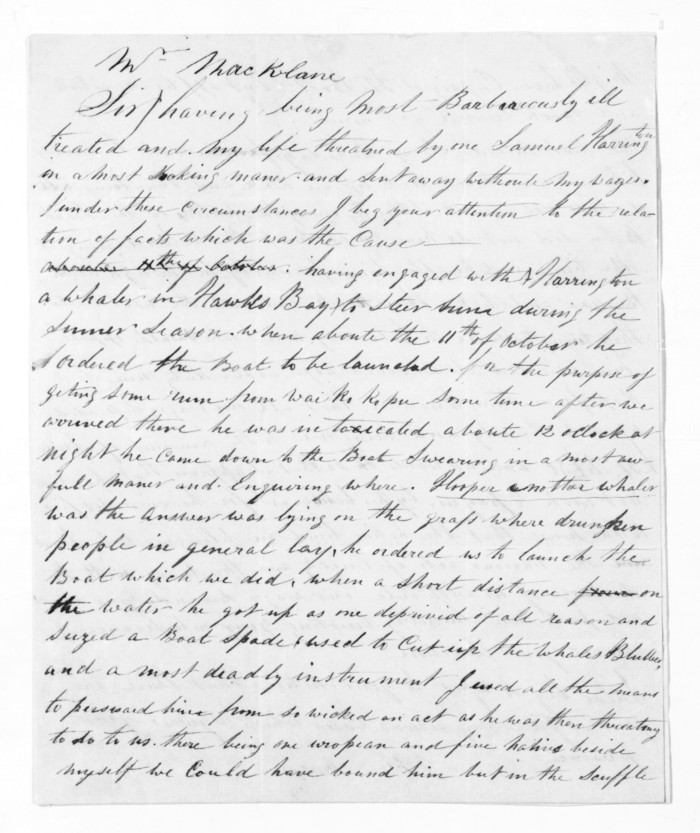 Mr Macklane
Sir) having being most Barbarously ill
treated and my life threatned by one Samuel Harrington
in a most shoking maner and sent away withoute my wages.
under these circumstances I beg your attention to the rela-
tion of facts which was the Cause
aboute 11th of October. having engaged with S Harrington
a whaler in Hawks Bay to Steer during the
Sumer Season. when aboute the 11th of October he
ordered the Boat to be launched. for the purpose of
geting some rum from wai ko kopu some time after we
arrived there he was intoxicated aboute 12 oclock at
night he came down to the Boat Swearing in a most aw-
full maner and Enquiring where. Hooper another whaler
was the answer was lying on the grass where drunken
people in general lay, he ordered us to launch the
Boat which we did, when a Short distance from on
the water he got up as one deprivid of all reason and
Siezed a Boat Spade used to Cut up the whales Blubber,
and a most deadly instrument I used all the means
to persuaid him from so wicked an act as he was then threatning
to do to us. there being one uropean and five natives beside
myself we could have bound him but in the scuffle